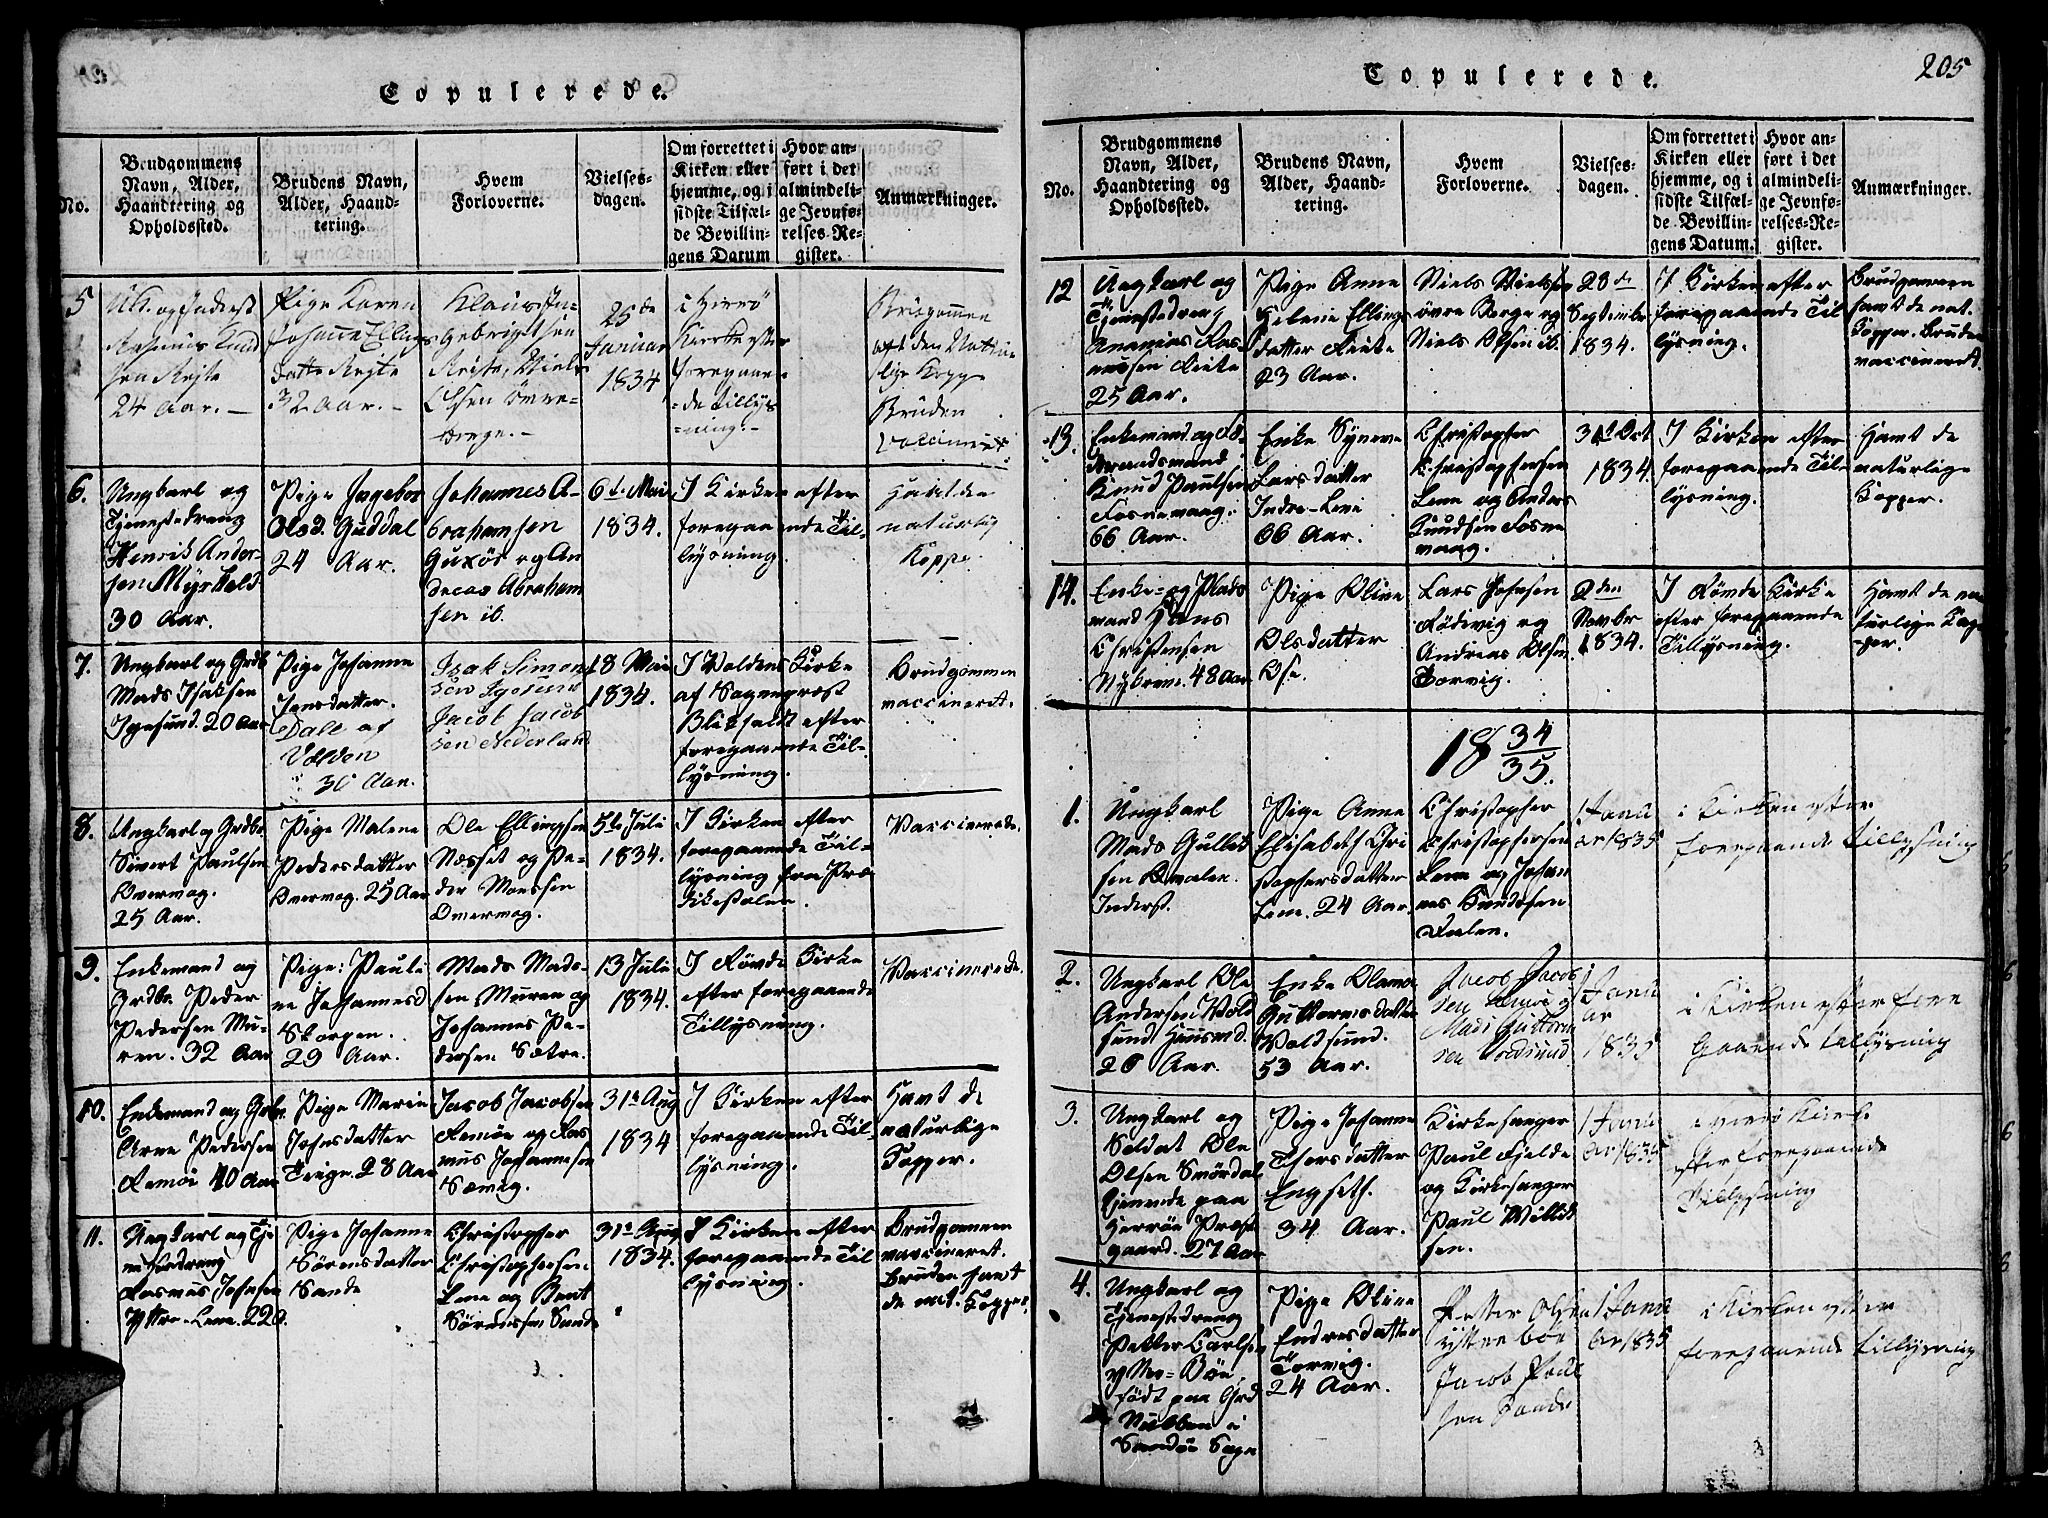 Copulerede.
No.
Brudgommens
Navn, Alder,
Haandtering og
Opholdssted.
Brudens Navn,
Alder, Haand-
tering.
Hvem
Forloverne.
Vielses-
dagen.
Om forrettet i
Kirken eller
hjemme, og i
sidste Tilfæl-
de Bevillin-
gens Datum
Hvor an-
ført i det
almindeli-
ge Jevnfø-
relses-Re-
gister.
Anmærkninger.
5
24 Aar.
Pige Karen
32 Aar.
25de
Januar
1834
Kirke efter
foregaaen-
de Tillys-
ning.
Bruden
6.
Ungkarl og
Tjenestedreng
Henrik Ander-
sen Myrhold
30 Aar.
Pige Ingebor
Olsd. Guddal
24 Aar.
Johannes A-
brahamsen
Guxør og An
dreas Abraham
sen ib.
6te Mai
1834.
I Kirken efter
foregaaende Til-
lysning.
Havt de
naturlig
Koppe.
7.
Ungkarl og Grdb.
Mads Isaksen
Igesund. 20 Aar
Pige Johanne
Jensdatter.
Dale af
Volden
30 Aar.
Isak Simon
sen Igesund
Jacob Jacob
sen Nederland
18 Mai
1834.
I Voldens Kirke
af Sognepræst
foregaaende Til-
lysning.
Brudgommen
vaccineret.
8.
Ungkarl og Grdbr.
Sivert Paulsen
Overvog.
25 Aar.
Pige Malene
Pedersdatter
Overvog. 25 Aar
Ole Ellingsen
Næsset og Pe-
der Monssen
Overvog.
5te Juli
1834.
I Kirken efter
foregaaende Til-
lysning fra Præ-
dikestolen.
Vaccinerede.
9.
Enkemand og
Grdbr. Peder
Pedersen Mu-
ren. 32 Aar
Pige: Pauli
ne Johannesd
Skorgen.
29 Aar.
Mads Mads-
sen Muren og
Johannes Pe-
dersen Sætre.
13 Juli
1834.
I Røvde Kirke
efter foregaaende
Tillysning.
Vaccinerede.
10.
Enkemand og Grbr.
Arne Pedersen
Remøi 40 Aar
Pige Marie
Johnsdatter
28 Aar
Jacob Jacobsen
Remøe og Ras
mus Johannesen
31te Aug
1834
I Kirken efter
foregaaende Til-
lysning.
Havt de
naturlige
Kopper.
11.
Ungkarl og Tje
nestedreng
Rasmus Johnsen
Yttre-Lene. 22 A.
Pige Johanne
Sörensdatter
Sande
Christopher
Christophersen
Lene og Bent
Sörenssen Sande
31te Aug
1834.
I Kirken efter
foregaaende Til
lysning.
Brudgommen
vaccineret.
Bruden havt
de nat. Kopper.
Copulerede.
205
No.
Brudgommens
Navn, Alder,
Haandtering og
Opholdssted.
Brudens Navn,
Alder, Haand-
tering.
Hvem
Forloverne.
Vielses-
dagen.
Om forrettet i
Kirken eller
hjemme, og i
sidste Tilfæl-
de Bevillin-
gens Datum.
Hvor an-
ført i det
almindeli-
ge Jevnfø-
relses-Re-
gister.
Anmærkninger.
12
Ungkarl og
Tjenestedreng
Ananias Ras-
mussen
25 Aar.
Pige Anne
Helene Ellings
datter
23 Aar.
Niels Nielsen
övre Berge og
Niels Olsen ib.
28de
September
1834.
I Kirken efter
foregaaende Til
lysning.
Brudgommen
havt de nat.
Kopper. Bruden
vaccineret.
13.
Enkemand og
Knud Paulsen
Fosnevaag.
66 Aar.
Enke Synneve
Larsdatter
Indre-Lene
66 Aar.
Christopher
Christophersen
Lene og Anders
Knudsen Fosne
vaag.
31te Oct
1834.
I Kirken efter
foregaaende Til
lysning.
Havt de
naturlige
Kopper.
14.
Enke- og Plads
mand Hans
Christensen
48 Aar
Pige Oline
Olsdatter
Ose.
Lars Johnsen
Rödevig og
Andreas Olsen
Torvig.
2den
Novbr
1834.
I Røvde Kirke
efter foregaaende
Tillysning.
Havt de na
turlige Kop-
per.
1834/35.
1.
Ungkarl
Mads Gullik
sen
Inderst.
Pige Anne
Elisabeth Chri
stophersdatter
Lene. 24 Aar.
Christopher
Christophersen
Lene og Johan
nes Knudsen
1 Janu
ar 1835
i Kirken efter
foregaaende Tillysning
2.
Ungkarl Ole
Andersen Vold
sund Huusmd.
26 Aar.
Enke
Guttormsdatter
Voldsund.
53 Aar.
Jacob Jacob
sen
Mads Guttorm
sen Voldsund
1 Janu
ar
1835
i Kirken efter fore
gaaende tillysning
3.
Ungkarl og
Soldat Ole
Olsen Smördal
tjenende paa
Herröe Præste
gaard. 27 Aar
Pige Johanne
Thorsdatter
Engseth.
34 Aar.
Kirkesanger
Paul Fjelde
og Kirkesanger
Paul Willik
sen.
1 Janu
ar 1835
i Herrö Kirke
efter foregaaende
Tillysning
4.
Ungkarl og
Tjenestedreng
Petter Carlsen
Yttre-Böe
født paa Grd
Nubben i
Sandöe Sogn
Pige Oline
Endresdatter
Torvig.
24 Aar.
Petter Olsen
yttre böe
Jacob Paul
sen Sande
1 Janu
ar 1835
i Kirken efter
foregaaende tillysning